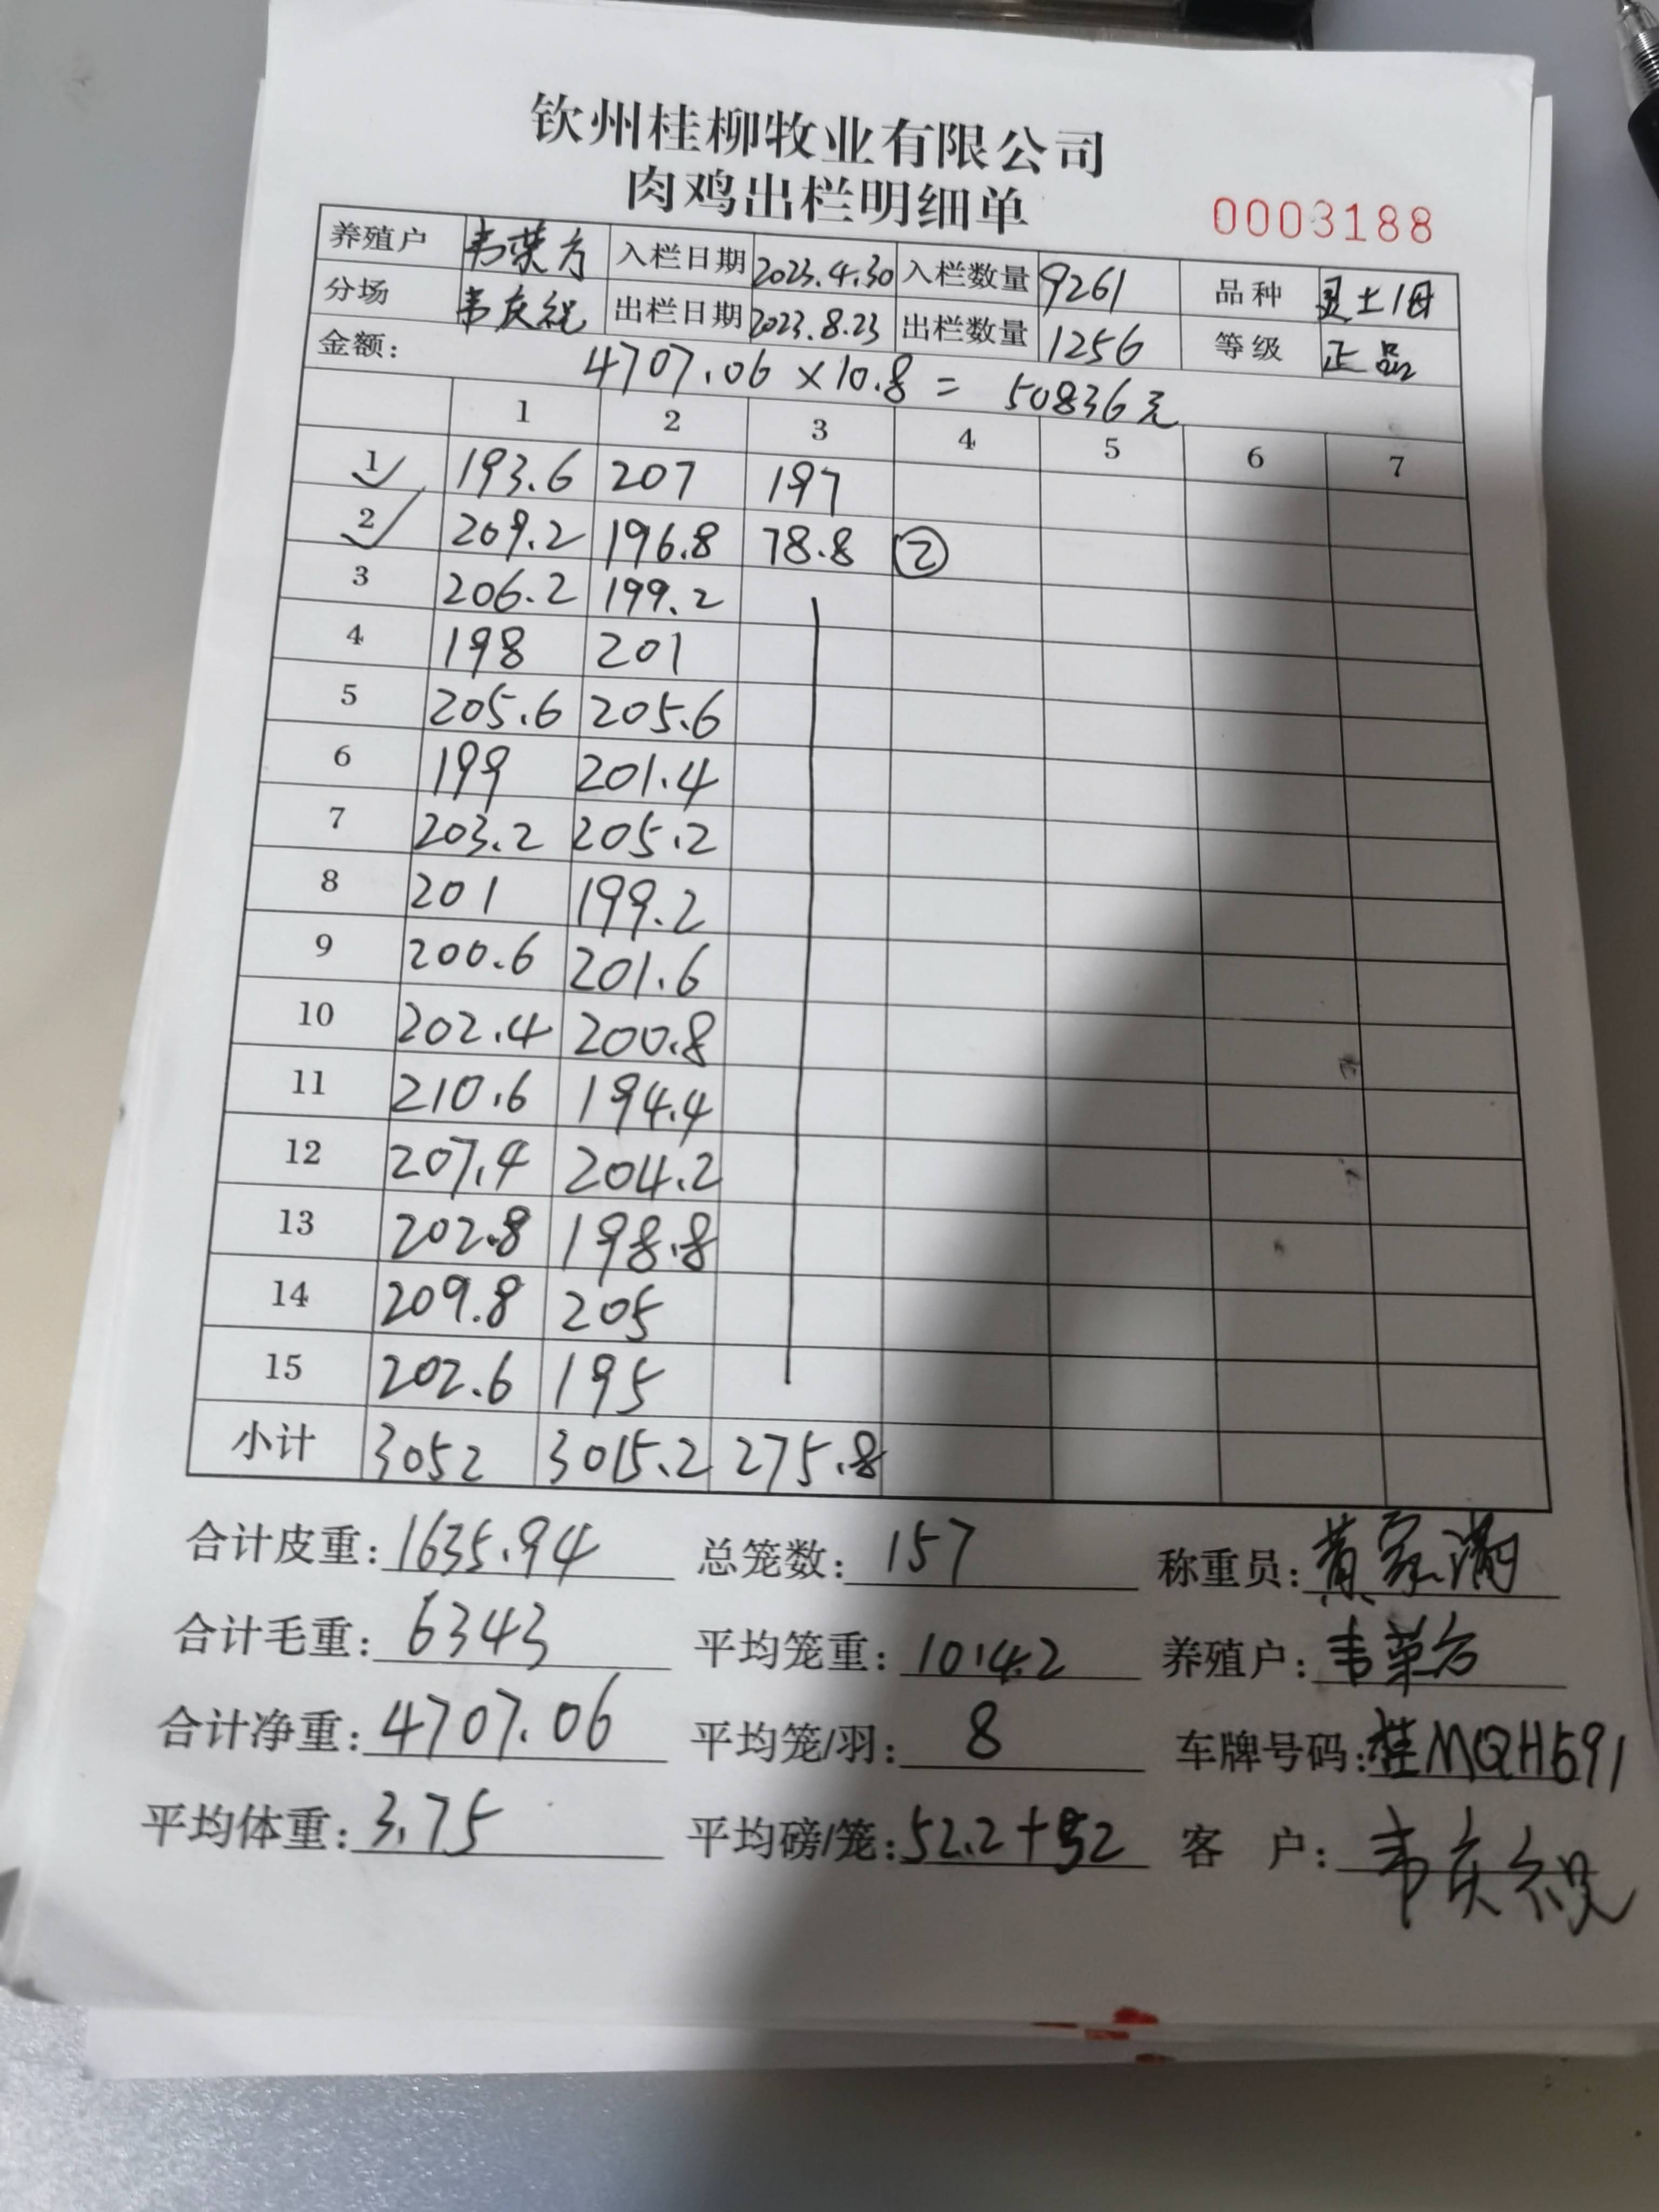 钦州桂柳牧业有限公司
肉鸡出栏明细单
0003188
养殖户 韦荣方 入栏日期 2023.4.30 入栏数量 9261 品种 灵土1母
分场 韦庆祝 出栏日期 2023.8.23 出栏数量 1256 等级 正品
金额: 4707.06×10.8= 50836元
1 2 3 4 5 6 7
1 193.6 207 197
2 209.2 196.8 78.8 ②
3 206.2 199.2
4 198 201
5 205.6 205.6
6 199 201.4
7 203.2 205.2
8 201 199.2
9 200.6 201.6
10 202.4 200.8
11 210.6 194.4
12 207.4 204.2
13 202.8 198.8
14 209.8 205
15 202.6 195
小计 3052 3015.2 275.8
合计皮重: 1635.94 总笼数: 157 称重员: 黄家满
合计毛重: 6343 平均笼重: 10.42 养殖户: 韦荣方
合计净重: 4707.06 平均笼/羽: 8 车牌号码: 桂MQH591
平均体重: 3.75 平均磅/笼: 52.2+52 客户: 韦庆祝